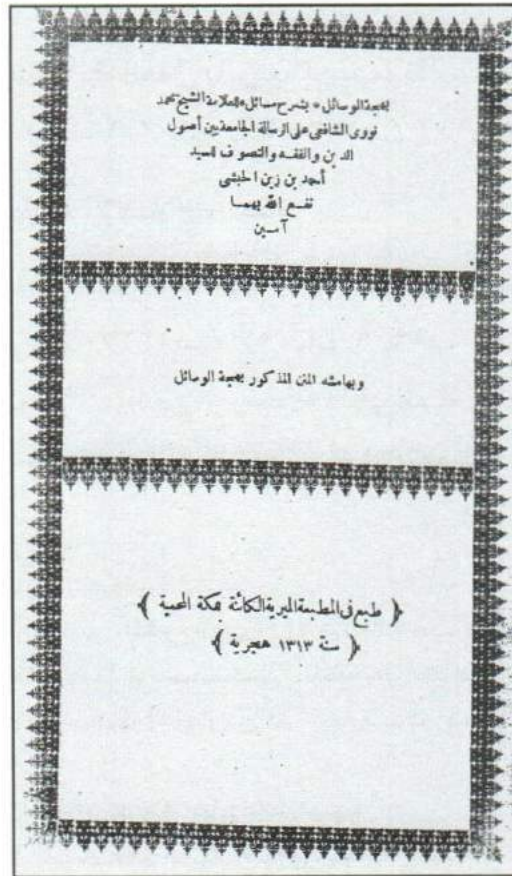 بهجة الوسائل * بشرح مسائل * للعلامة الشيخ محمد
نووى الشافعى على الرسالة الجامعة بين أصول
الدين والفقه والتصوف للسيد
أحمد بن زين الحبشى
نفع الله بهما
آمين
وبهامشه المتن المذكور بهجة الوسائل
﴿ طبع فى المطبعة الميرية الكائنة بمكة المحمية ﴾
﴿ سنة ١٣١٣ هجرية ﴾